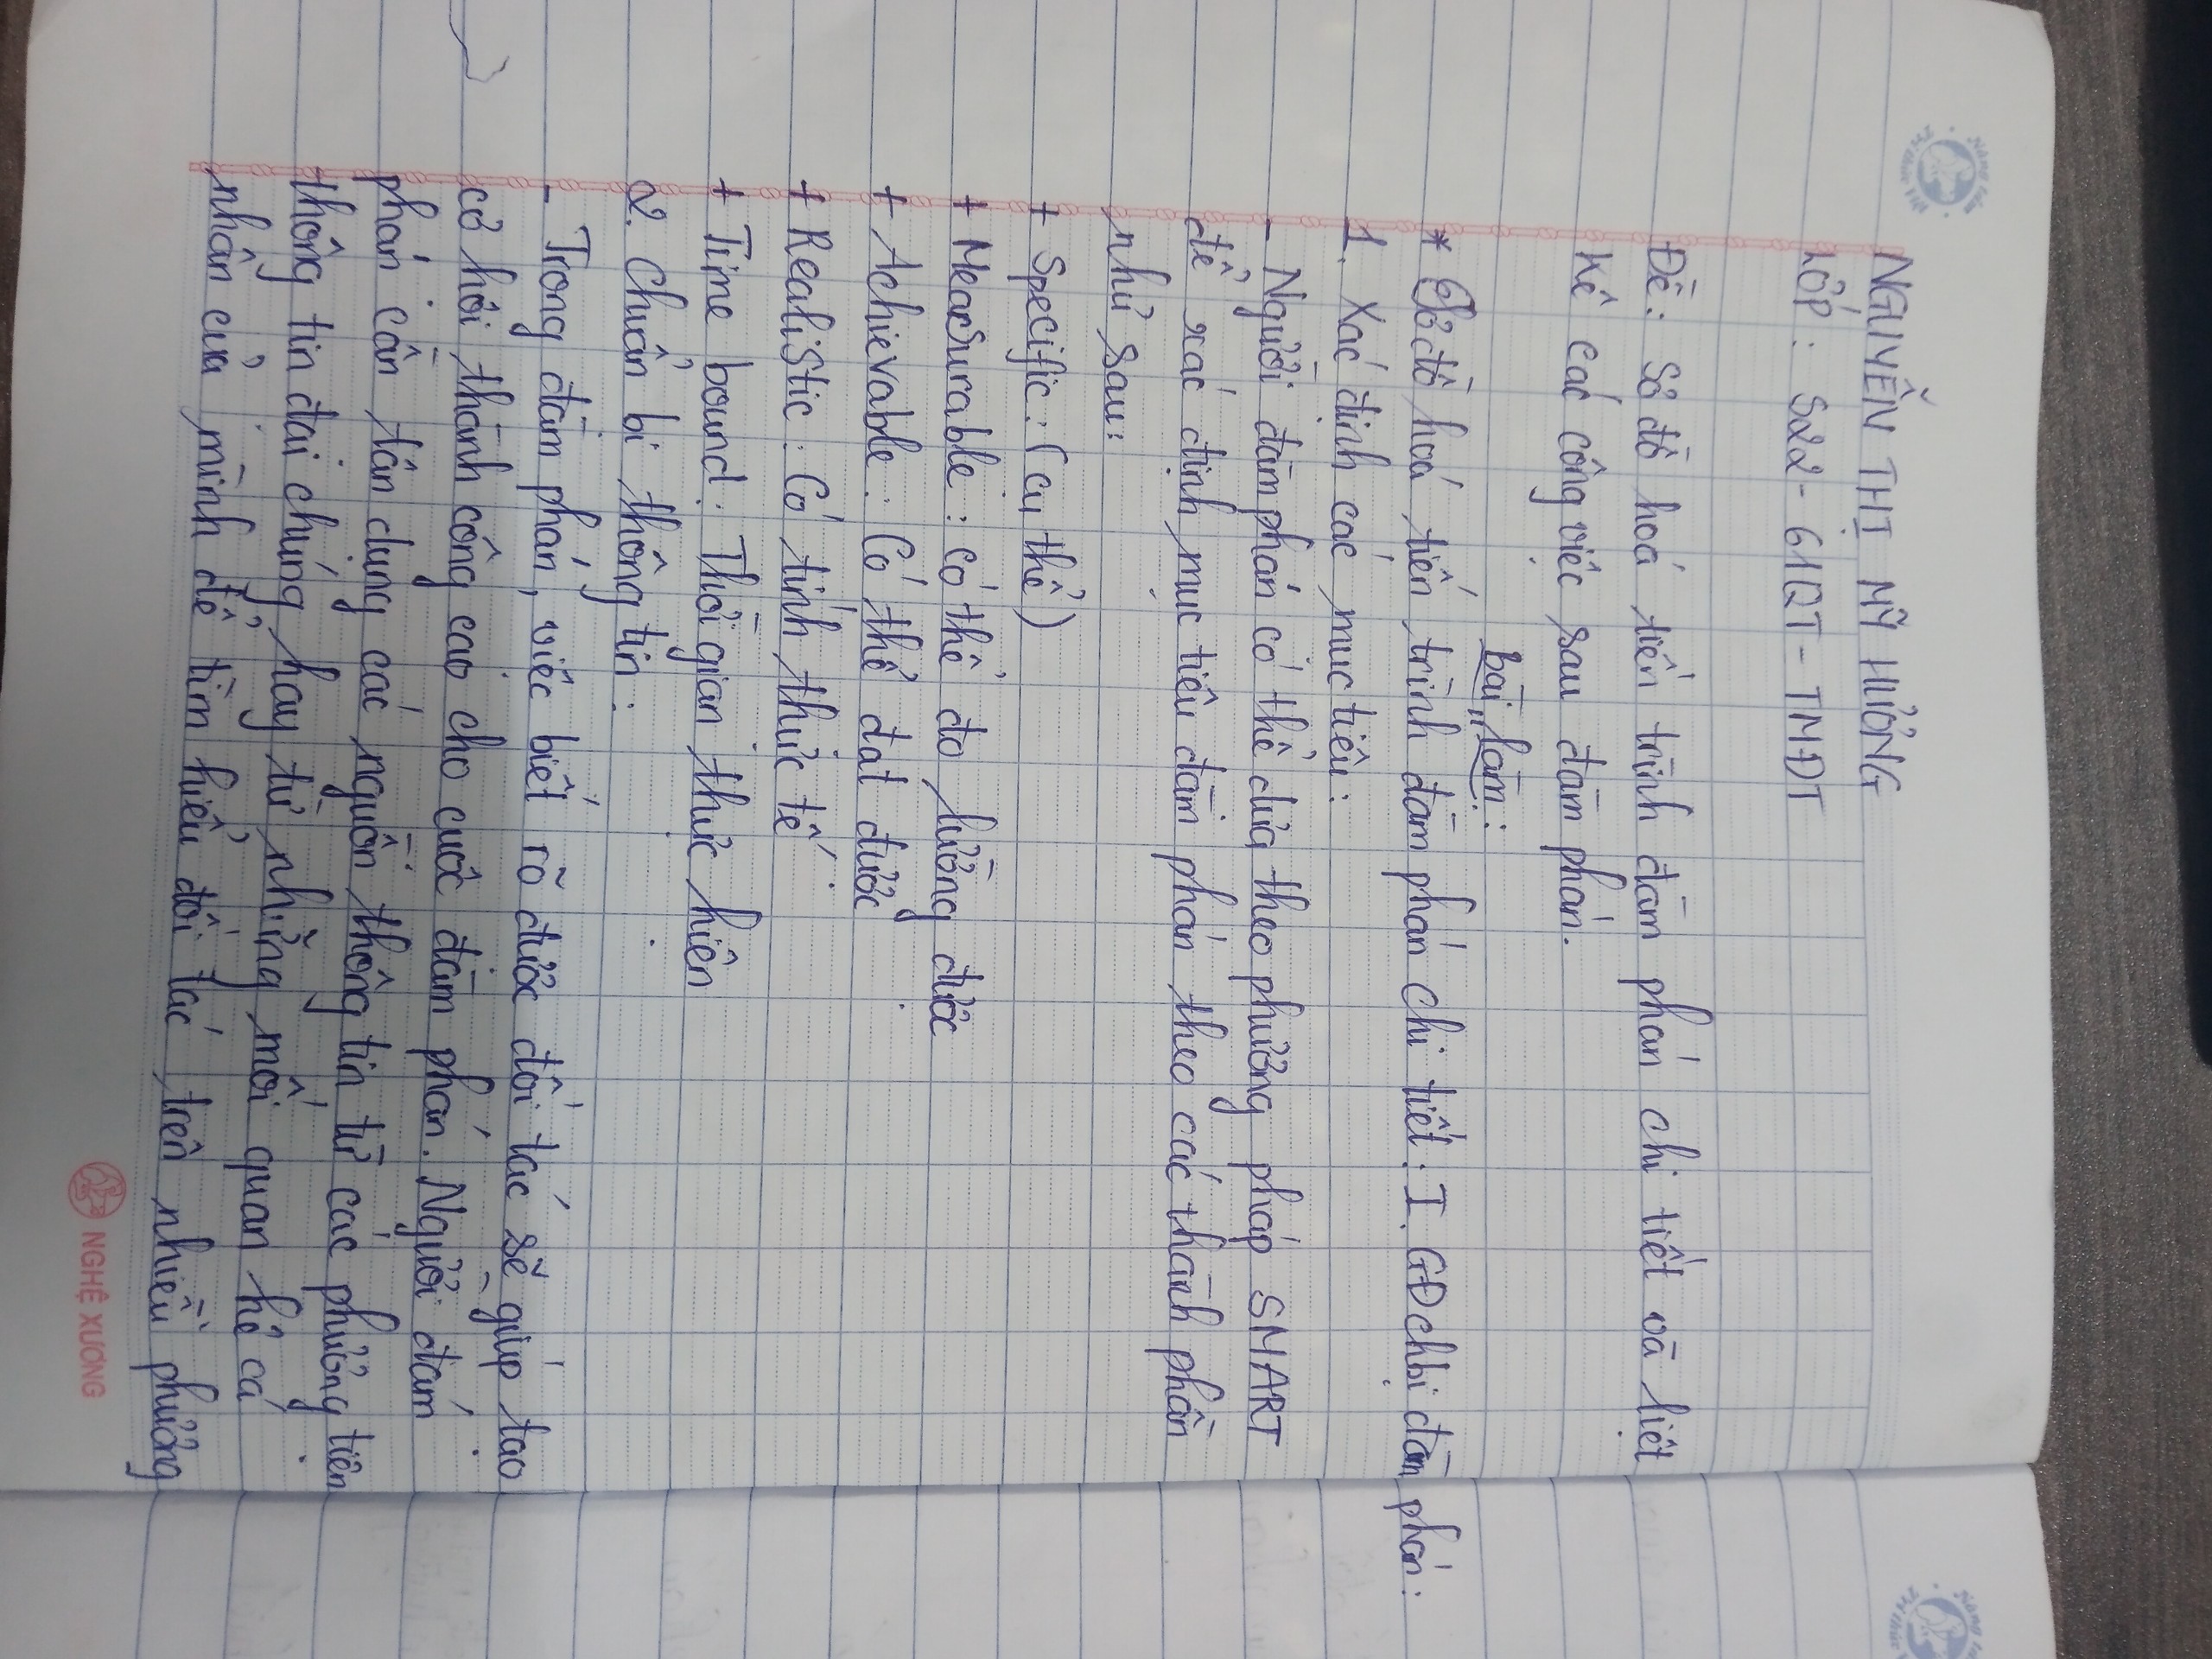 NGUYỄN THỊ MỸ HƯỜNG
LỚP: S22-61QT-TMĐT
Đề: Sơ đồ hoá tiến trình đàm phán chi tiết và liệt
kê các công việc sau đàm phán.
bài làm:
* Sơ đồ hoá tiến trình đàm phán chi tiết: I. GĐ chbị đàm phán:
1. Xác định các mục tiêu:
- Người đàm phán có thể dựa theo phương pháp SMART
để xác định mục tiêu đàm phán theo các thành phần
như sau:
+ Specific: (cụ thể)
+ Measurable: có thể đo lường được
+ Achievable: Có thể đạt được
+ Realistic: Có tính thực tế
+ Time bound: Thời gian thực hiện
2. Chuẩn bị thông tin:
- Trong đàm phán, việc biết rõ được đối tác sẽ giúp tạo
cơ hội thành công cao cho cuộc đàm phán. Người đàm
phán cần tận dụng các nguồn thông tin từ các phương tiện
thông tin đại chúng hay từ những mối quan hệ cá
nhân của mình để tìm hiểu đối tác trên nhiều phương
NGHỆ XƯƠNG